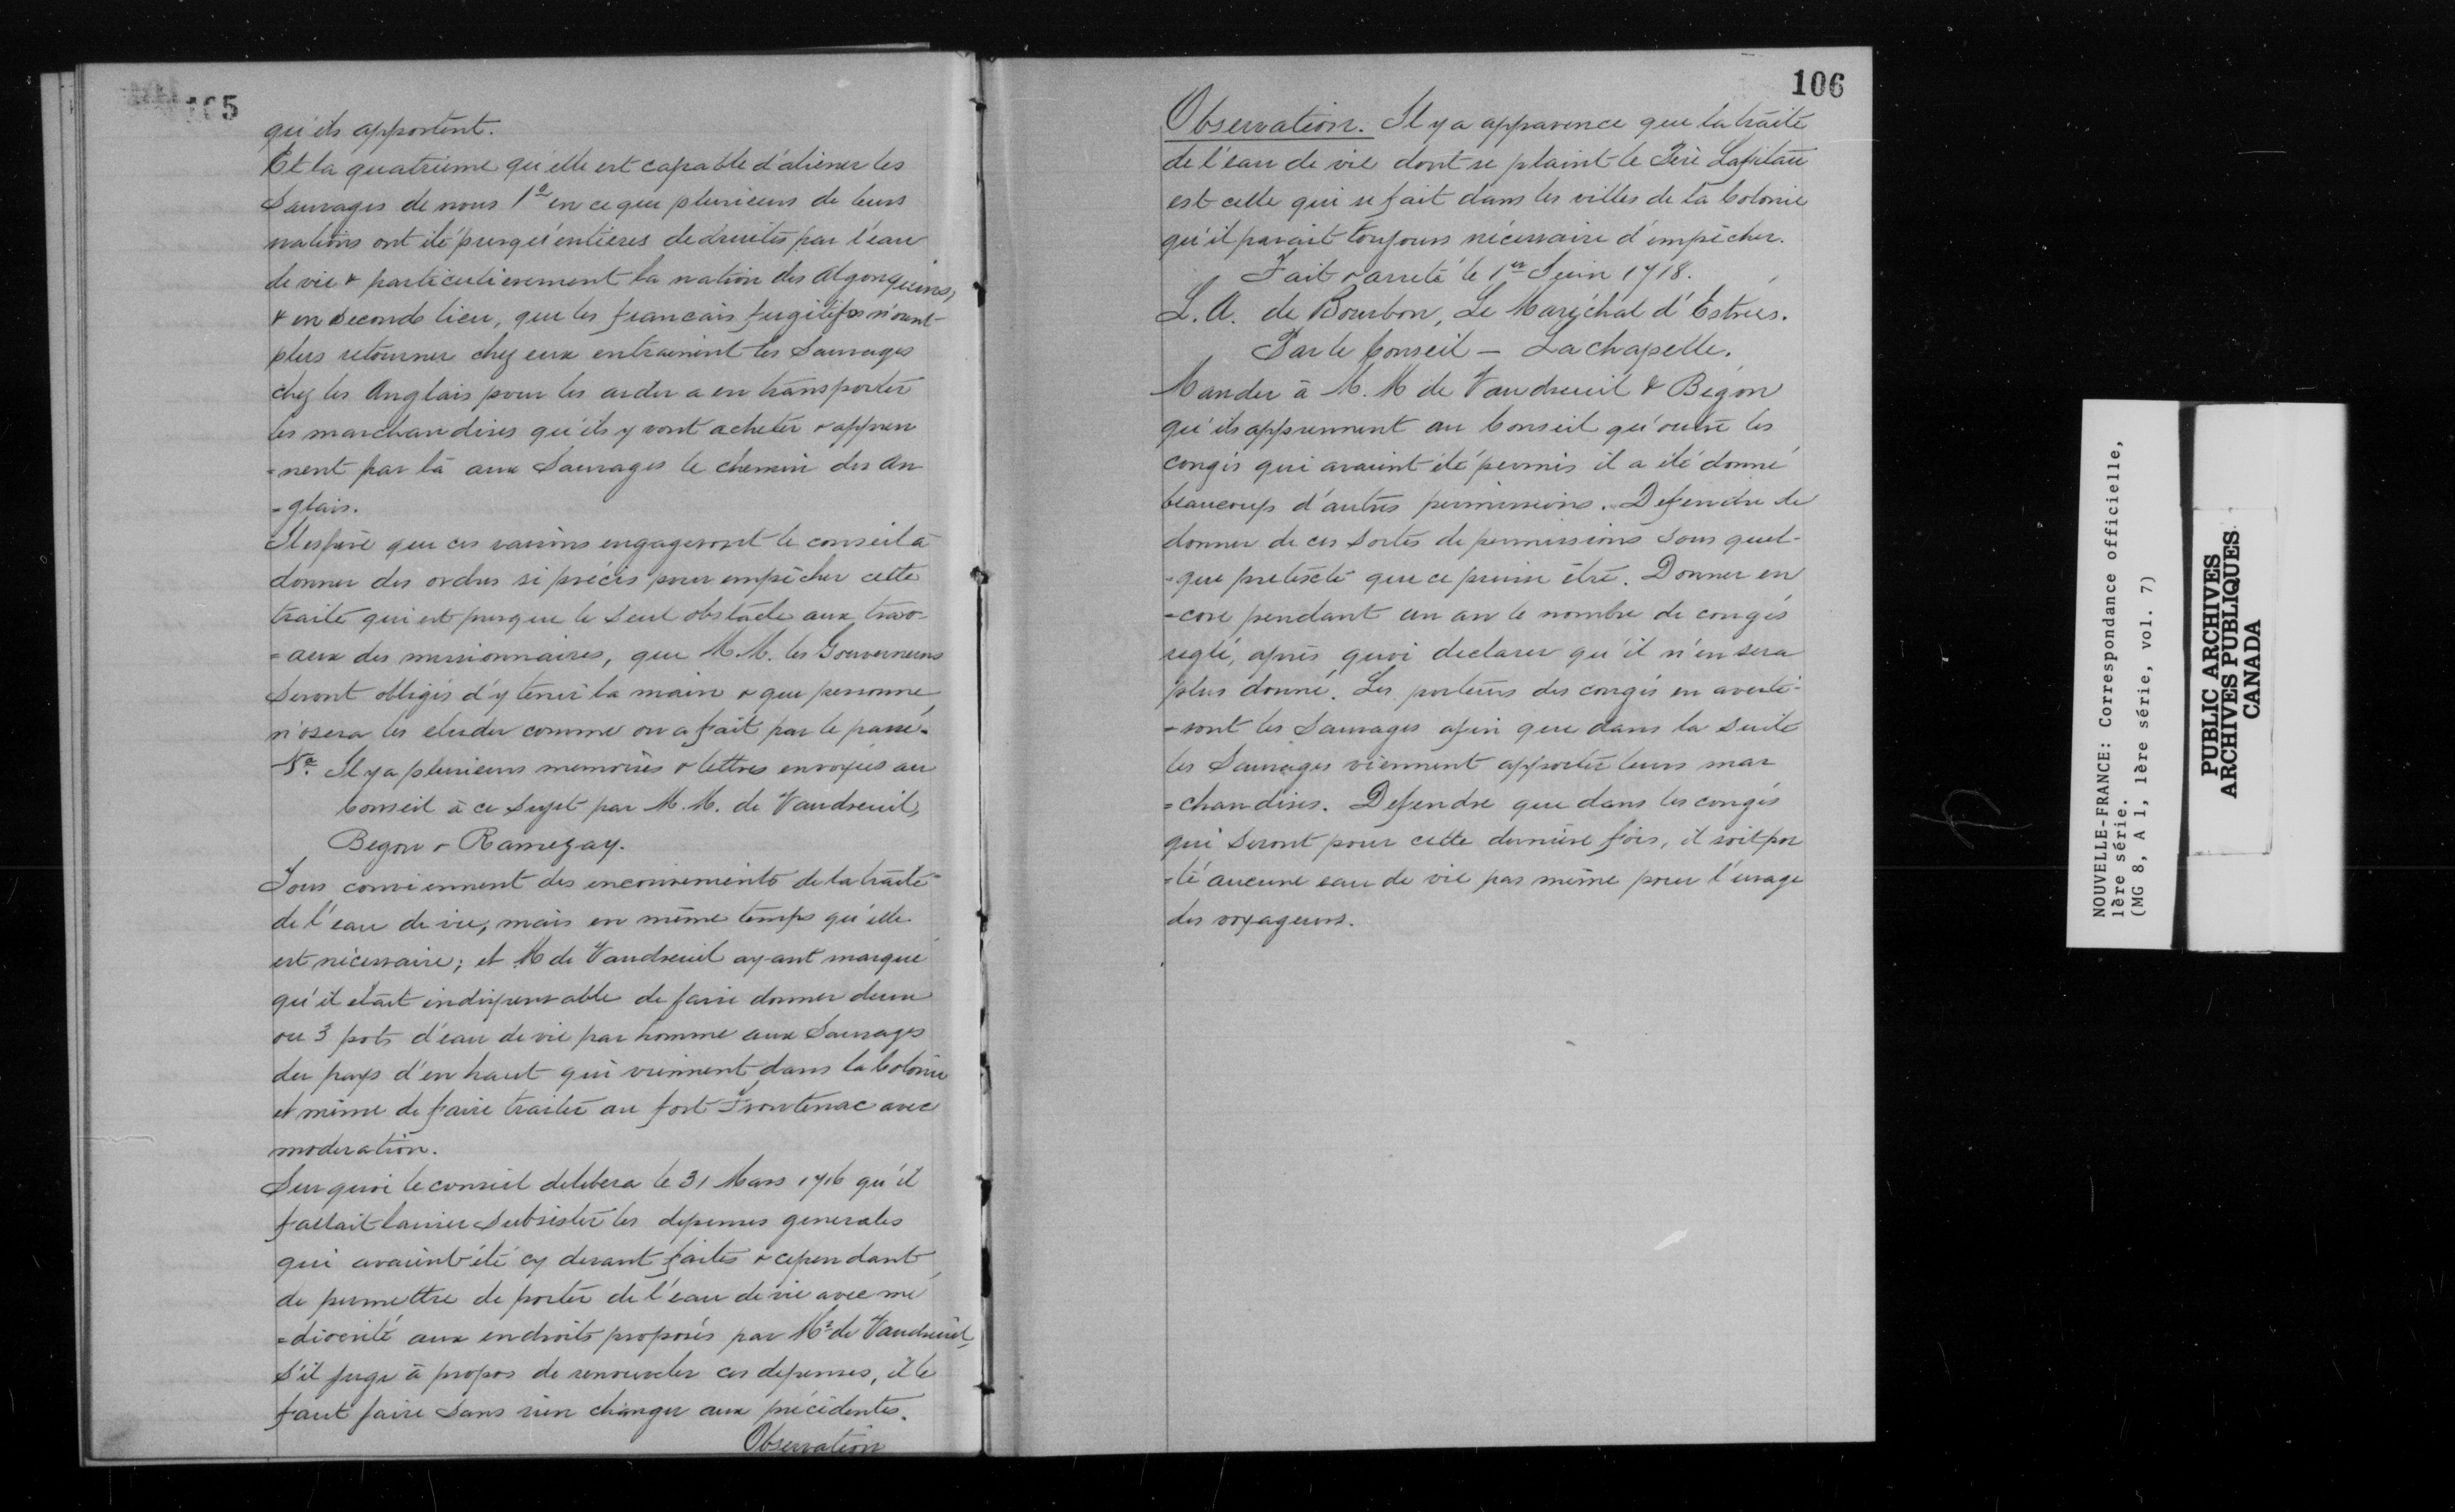 105
qu'ils apportent.
Et la quatrième qu'elle est capable d'aliener les
Sauvages de nous 1° en ce que plusieurs de leurs
nations ont été presqu'entieres detruites par l'eau
de vie & particulierement la nation des Algonquins,
& en second lieu, que les francais fugitifs n'osant
plus retourner chez eux entrainent les Sauvages
chez les Anglais pour les aider a en transporter
les marchandises qu'ils y vont acheter & appren
=nent par là aux Sauvages le chemin des An
=glais.
Il espère que ces raisons engageront le conseil à
donner des ordres si précis pour empêcher cette
traite qui est presque le seul obstacle aux trav-
=aux des missionnaires, que M.M. les Gouverneurs
seront obligés d'y tenir la main & que personne
n'osera les eluder comme on a fait par le passé.
Na Il y a plusieurs memoires & lettres envoyés au
Conseil à ce sujet par M.M. de Vaudreuil,
Begon & Ramezay.
Tous conviennent des inconvenients de la traite
de l'eau de vie, mais en même temps qu'elle
est nécessaire; et M de Vaudreuil ayant marqué
qu'il etait indispensable de faire donner deux
ou 3 pots d'eau de vie par homme aux Sauvages
du pays d'en haut qui viennent dans la Colonie
et même de faire traiter au fort Frontenac avec
moderation.
Sur quoi le conseil delibera le 31 Mars 1716 qu'il
fallait laisser subsister les depenses generales
qui avaient été cy devant faites & cependant
de permettre de porter de l'eau de vie avec mé
=diocrité aux endroits proposés par Mr de Vaudreuil
S'il juge à propos de renouveler ces depenses, il le
faut faire sans rien changer aux précédentes.
Observation
106
Observation. Il y a apparence que la traite
de l'eau de vie dont se plaint le Père Lafitau
est celle qui se fait dans les villes de la Colonie
qu'il parait toujours nécessaire d'empêcher.
Fait & arreté le 1er Juin 1718.
L. A. de Bourbon, Le Maréchal d'Estrées.
Par le Conseil — Lachapelle.
Mander à M. M de Vaudreuil & Begon
qu'ils apprennent au Conseil qu'outre les
congés qui avaient été permis il a été donné
beaucoup d'autres permissions. Defendre de
donner de ces sortes de permissions sous quel-
=que pretexte que ce puisse être. Donner en
=core pendant un an le nombre de congés
reglé, après quoi declarer qu'il n'en sera
plus donné. Les porteurs des congés en averti-
=ront les Sauvages afin que dans la suite
les Sauvages viennent apporter leurs mar
=chandises. Defendre que dans les congés
qui seront pour cette dernière fois, il soit por
=té aucune eau de vie pas même pour l'usage
des voyageurs.
NOUVELLE-FRANCE: Correspondance officielle,
1ère série.
(MG 8, A 1, 1ère série, vol. 7)
PUBLIC ARCHIVES
ARCHIVES PUBLIQUES
CANADA